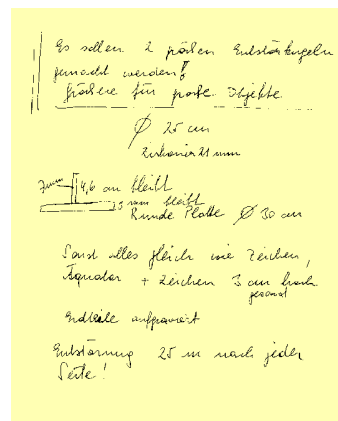 Es sollen 2 größen Entstörkugeln
gemacht werden!
größere für große Objekte
Ø 25 cm
21 mm
7mm 4,6 cm bleibt
25 mm bleibt
Runde Platte Ø 30 cm
Sonst alles gleich wie Zeichen,
Äquator + Zeichen 3 cm hoch
gesamt
Erdteile aufgraviert
Entstörung 25 m nach jeder
Seite!